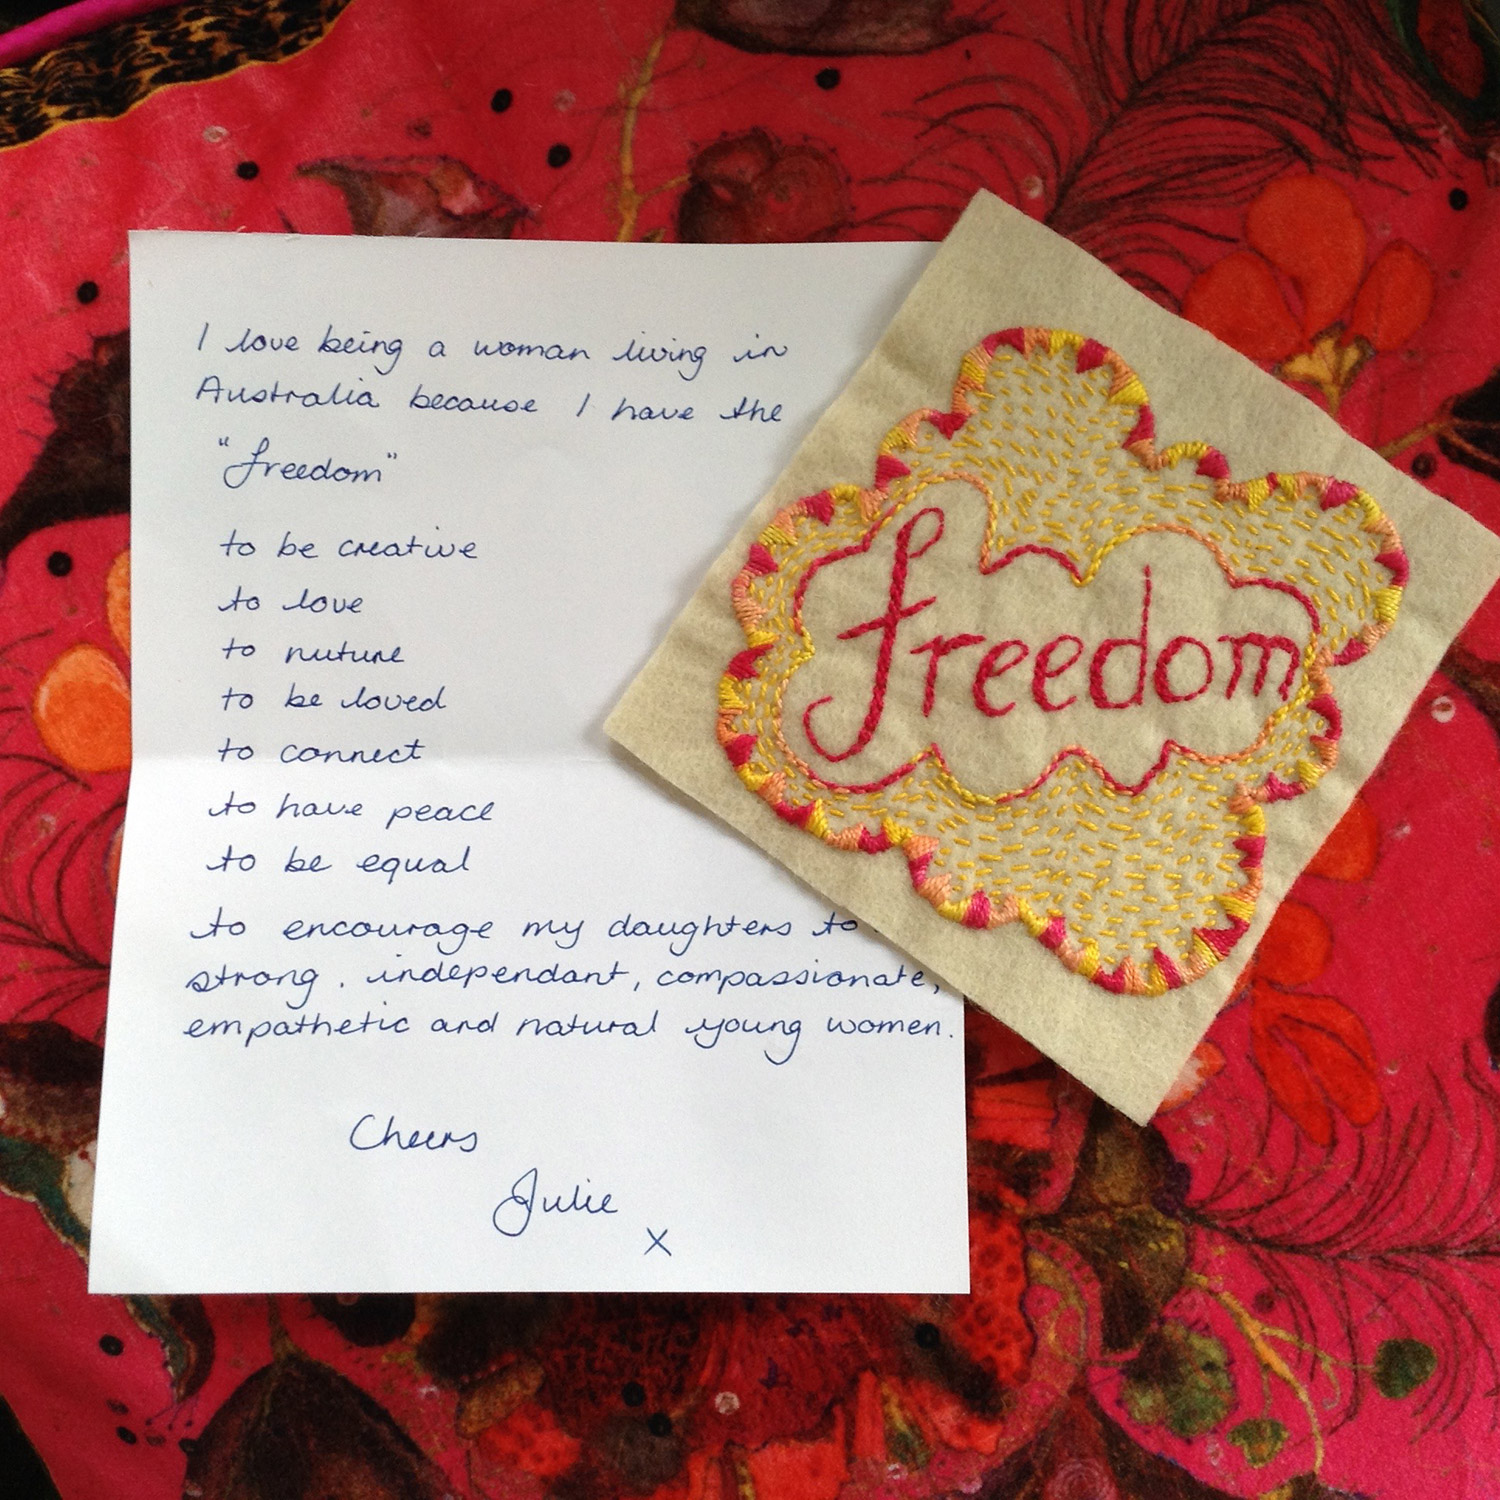 I love being a woman living in
Australia because I have the
"freedom"
to be creative
to love
to nuture
to be loved
to connect
to have peace
to be equal
to encourage my daughters to
strong. independant, compassionate,
empathetic and natural young women.
Cheers
Julie
x
freedom